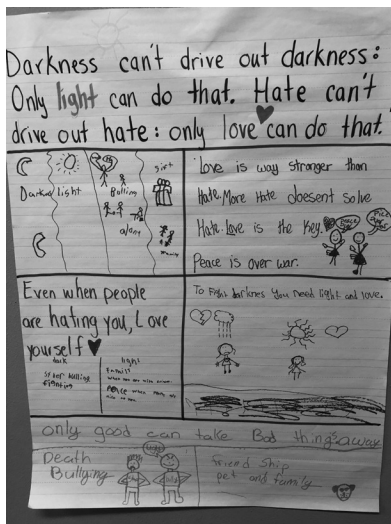 Darkness can't drive out darkness:
Only light can do that. Hate can't
drive out hate: only love can do that.
Darknes light
Bulling
gift
alone
Love is way stronger than
Hate. More Hate doesent solve
Hate. Love is the key.
Peace is over war.
Even when people
are hating you, Love
yourself
dark
light
fighting
To Fight darknes you need light and love.
only good can take Bad things away
Death
Bullying
friend ship
pet and family